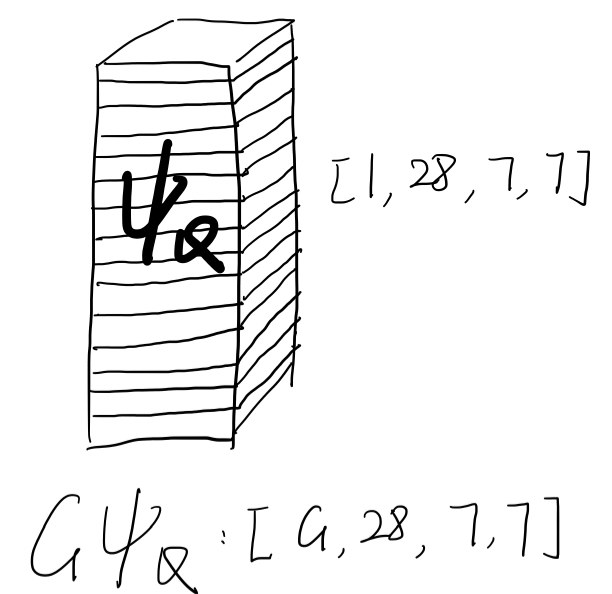 ψQ
[1, 28, 7, 7]
GψQ : [G, 28, 7, 7]